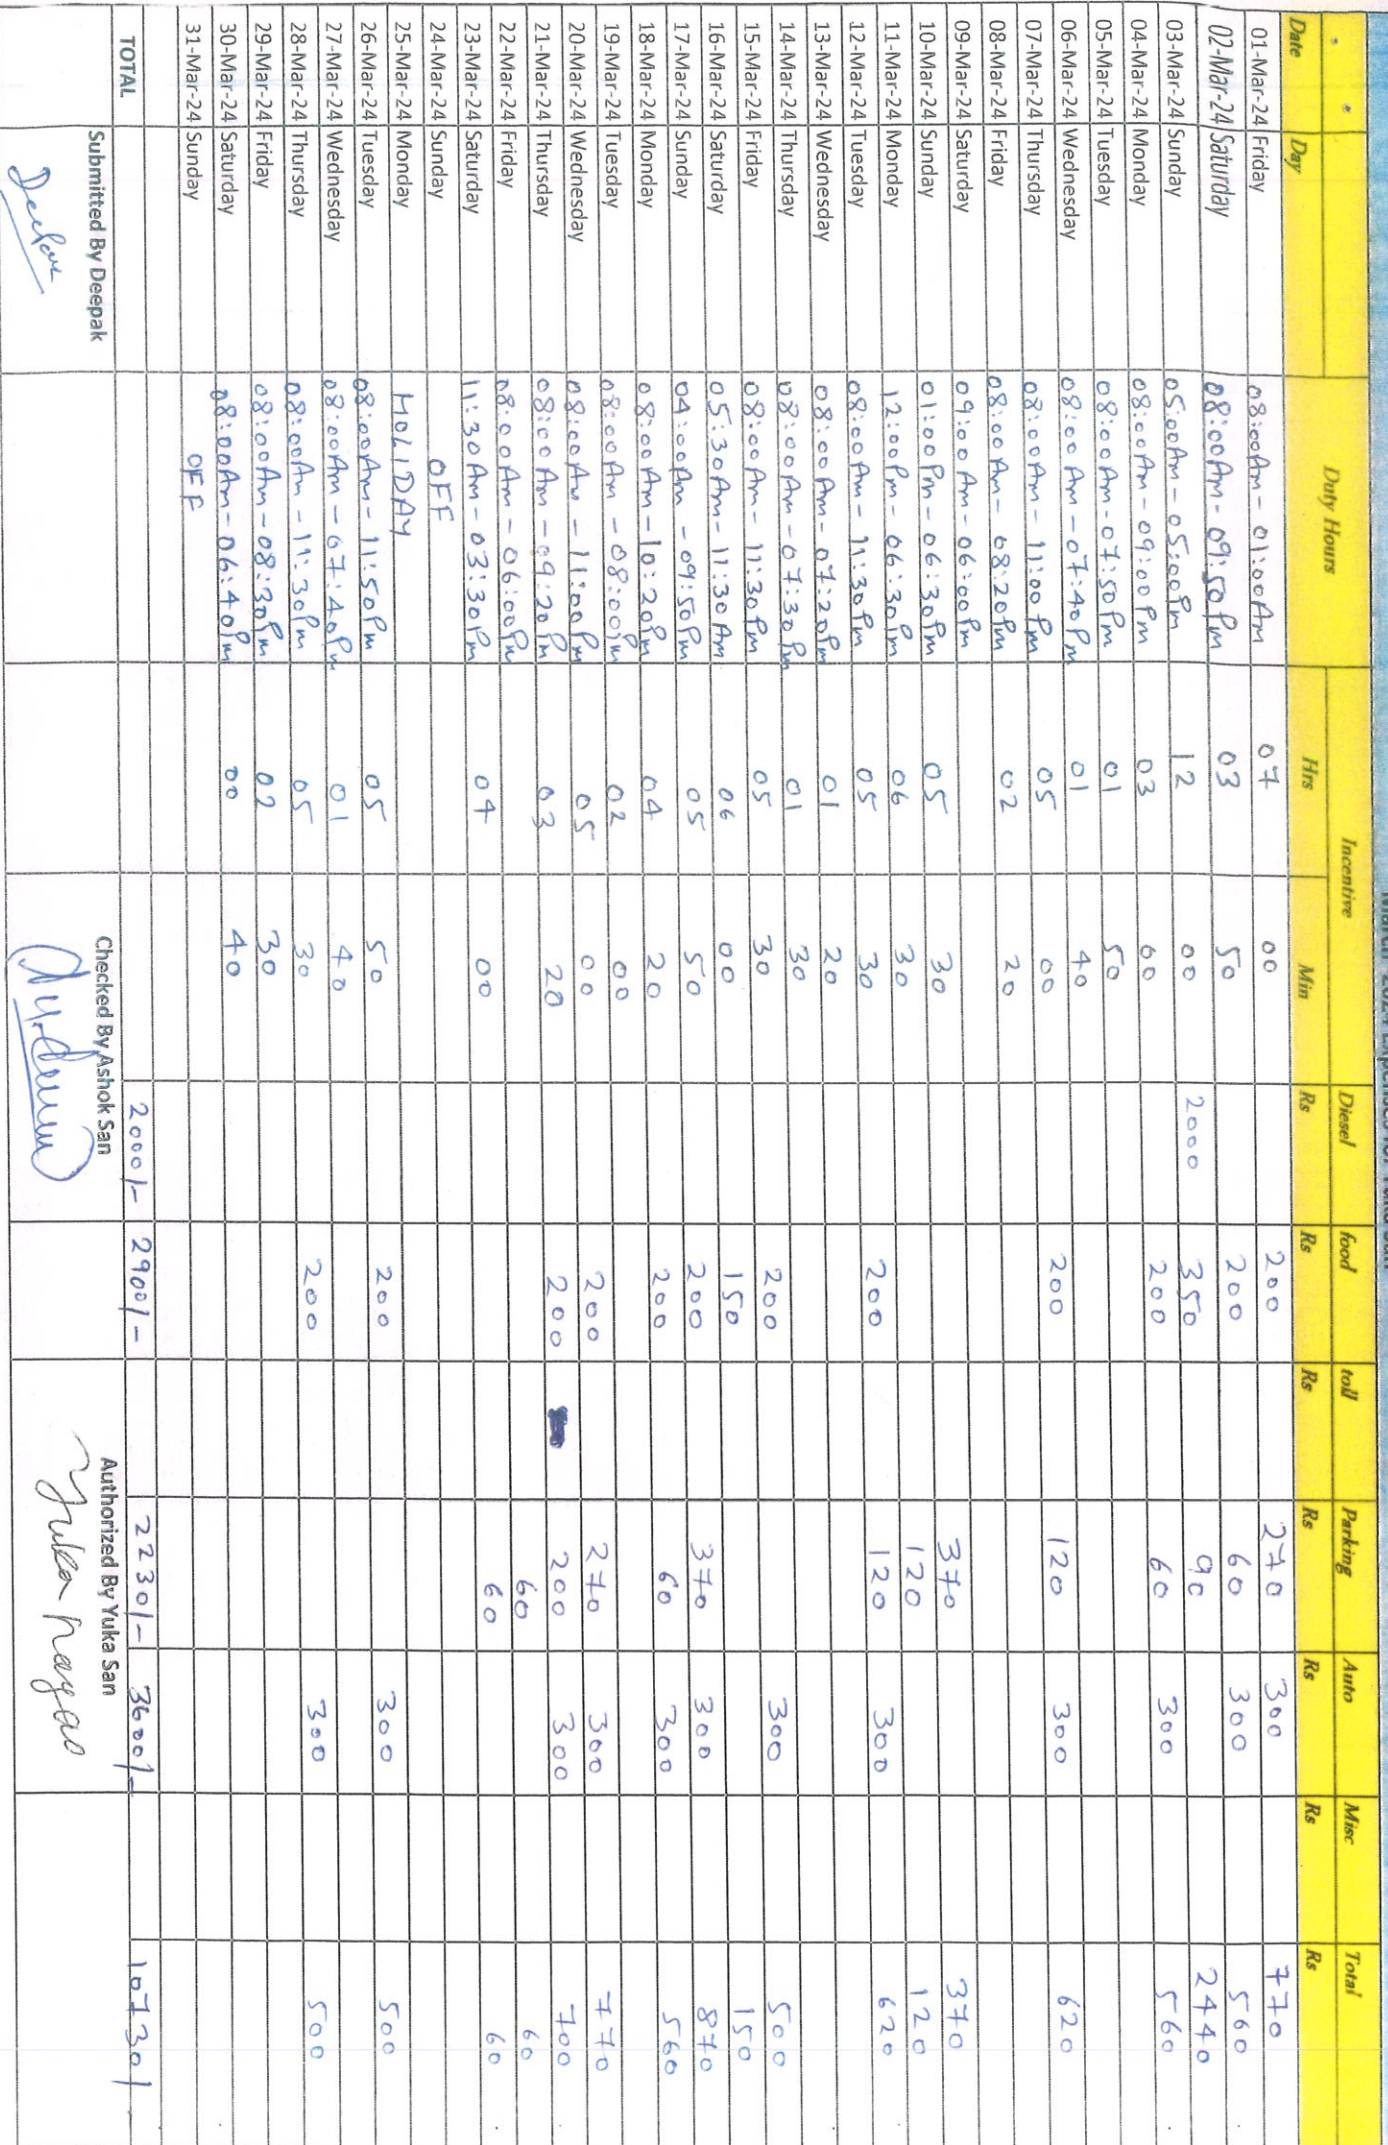 March 2024 Expenses for Yuka San
Duty Hours Incentive Diesel food toll Parking Auto Misc Total
Date Day Hrs Min Rs Rs Rs Rs Rs Rs Rs
01-Mar-24 Friday 08:00Am - 01:00Am 07 00 200 270 300 770
02-Mar-24 Saturday 08:00Am - 09:50Pm 03 50 200 60 300 560
03-Mar-24 Sunday 05:00Am - 05:00Pm 12 00 2000 350 90 2440
04-Mar-24 Monday 08:00Am - 09:00Pm 03 00 200 60 300 560
05-Mar-24 Tuesday 08:00Am - 07:50Pm 01 50
06-Mar-24 Wednesday 08:00Am - 07:40Pm 01 40
07-Mar-24 Thursday 08:00Am - 11:00Pm 05 00 200 120 300 620
08-Mar-24 Friday 08:00Am - 08:20Pm 02 20
09-Mar-24 Saturday 09:00Am - 06:00Pm
10-Mar-24 Sunday 01:00Pm - 06:30Pm 05 30 370 370
11-Mar-24 Monday 12:00Pm - 06:30Pm 06 30 120 120
12-Mar-24 Tuesday 08:00Am - 11:30Pm 05 30 200 120 300 620
13-Mar-24 Wednesday 08:00Am - 07:20Pm 01 20
14-Mar-24 Thursday 08:00Am - 07:30Pm 01 30
15-Mar-24 Friday 08:00Am - 11:30Pm 05 30 200 300 500
16-Mar-24 Saturday 05:30Am - 11:30Am 06 00 150 150
17-Mar-24 Sunday 04:00Am - 09:50Pm 05 50 200 370 300 870
18-Mar-24 Monday 08:00Am - 10:20Pm 04 20 200 60 300 560
19-Mar-24 Tuesday 08:00Am - 08:00Pm 02 00
20-Mar-24 Wednesday 08:00Am - 11:00Pm 05 00 200 270 300 770
21-Mar-24 Thursday 08:00Am - 09:20Pm 03 20 200 200 300 700
22-Mar-24 Friday 08:00Am - 06:00Pm 60 60
23-Mar-24 Saturday 11:30Am - 03:30Pm 04 00 60 60
24-Mar-24 Sunday OFF
25-Mar-24 Monday HOLIDAY
26-Mar-24 Tuesday 08:00Am - 11:50Pm 05 50 200 300 500
27-Mar-24 Wednesday 08:00Am - 07:40Pm 01 40
28-Mar-24 Thursday 08:00Am - 11:30Pm 05 30 200 300 500
29-Mar-24 Friday 08:00Am - 08:30Pm 02 30
30-Mar-24 Saturday 08:00Am - 06:40Pm 00 40
31-Mar-24 Sunday OFF
TOTAL 2000/- 2900/- 2230/- 3600/- 10730/-
Submitted By Deepak Checked By Ashok San Authorized By Yuka San
Deepak Yuka Nagao